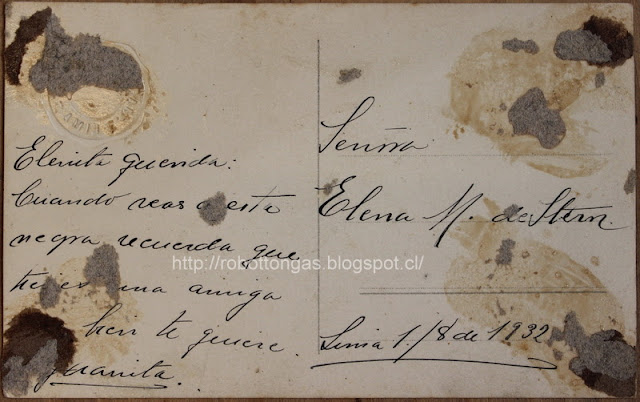 Elenita querida:
Cuando veas a esta
negra recuerda que
tienes una amiga
bien te quiere.
Juanita.
Señora
Elena M. de Stern.
Lima 1./8. de 1932
http://robottongas.blogspot.cl/